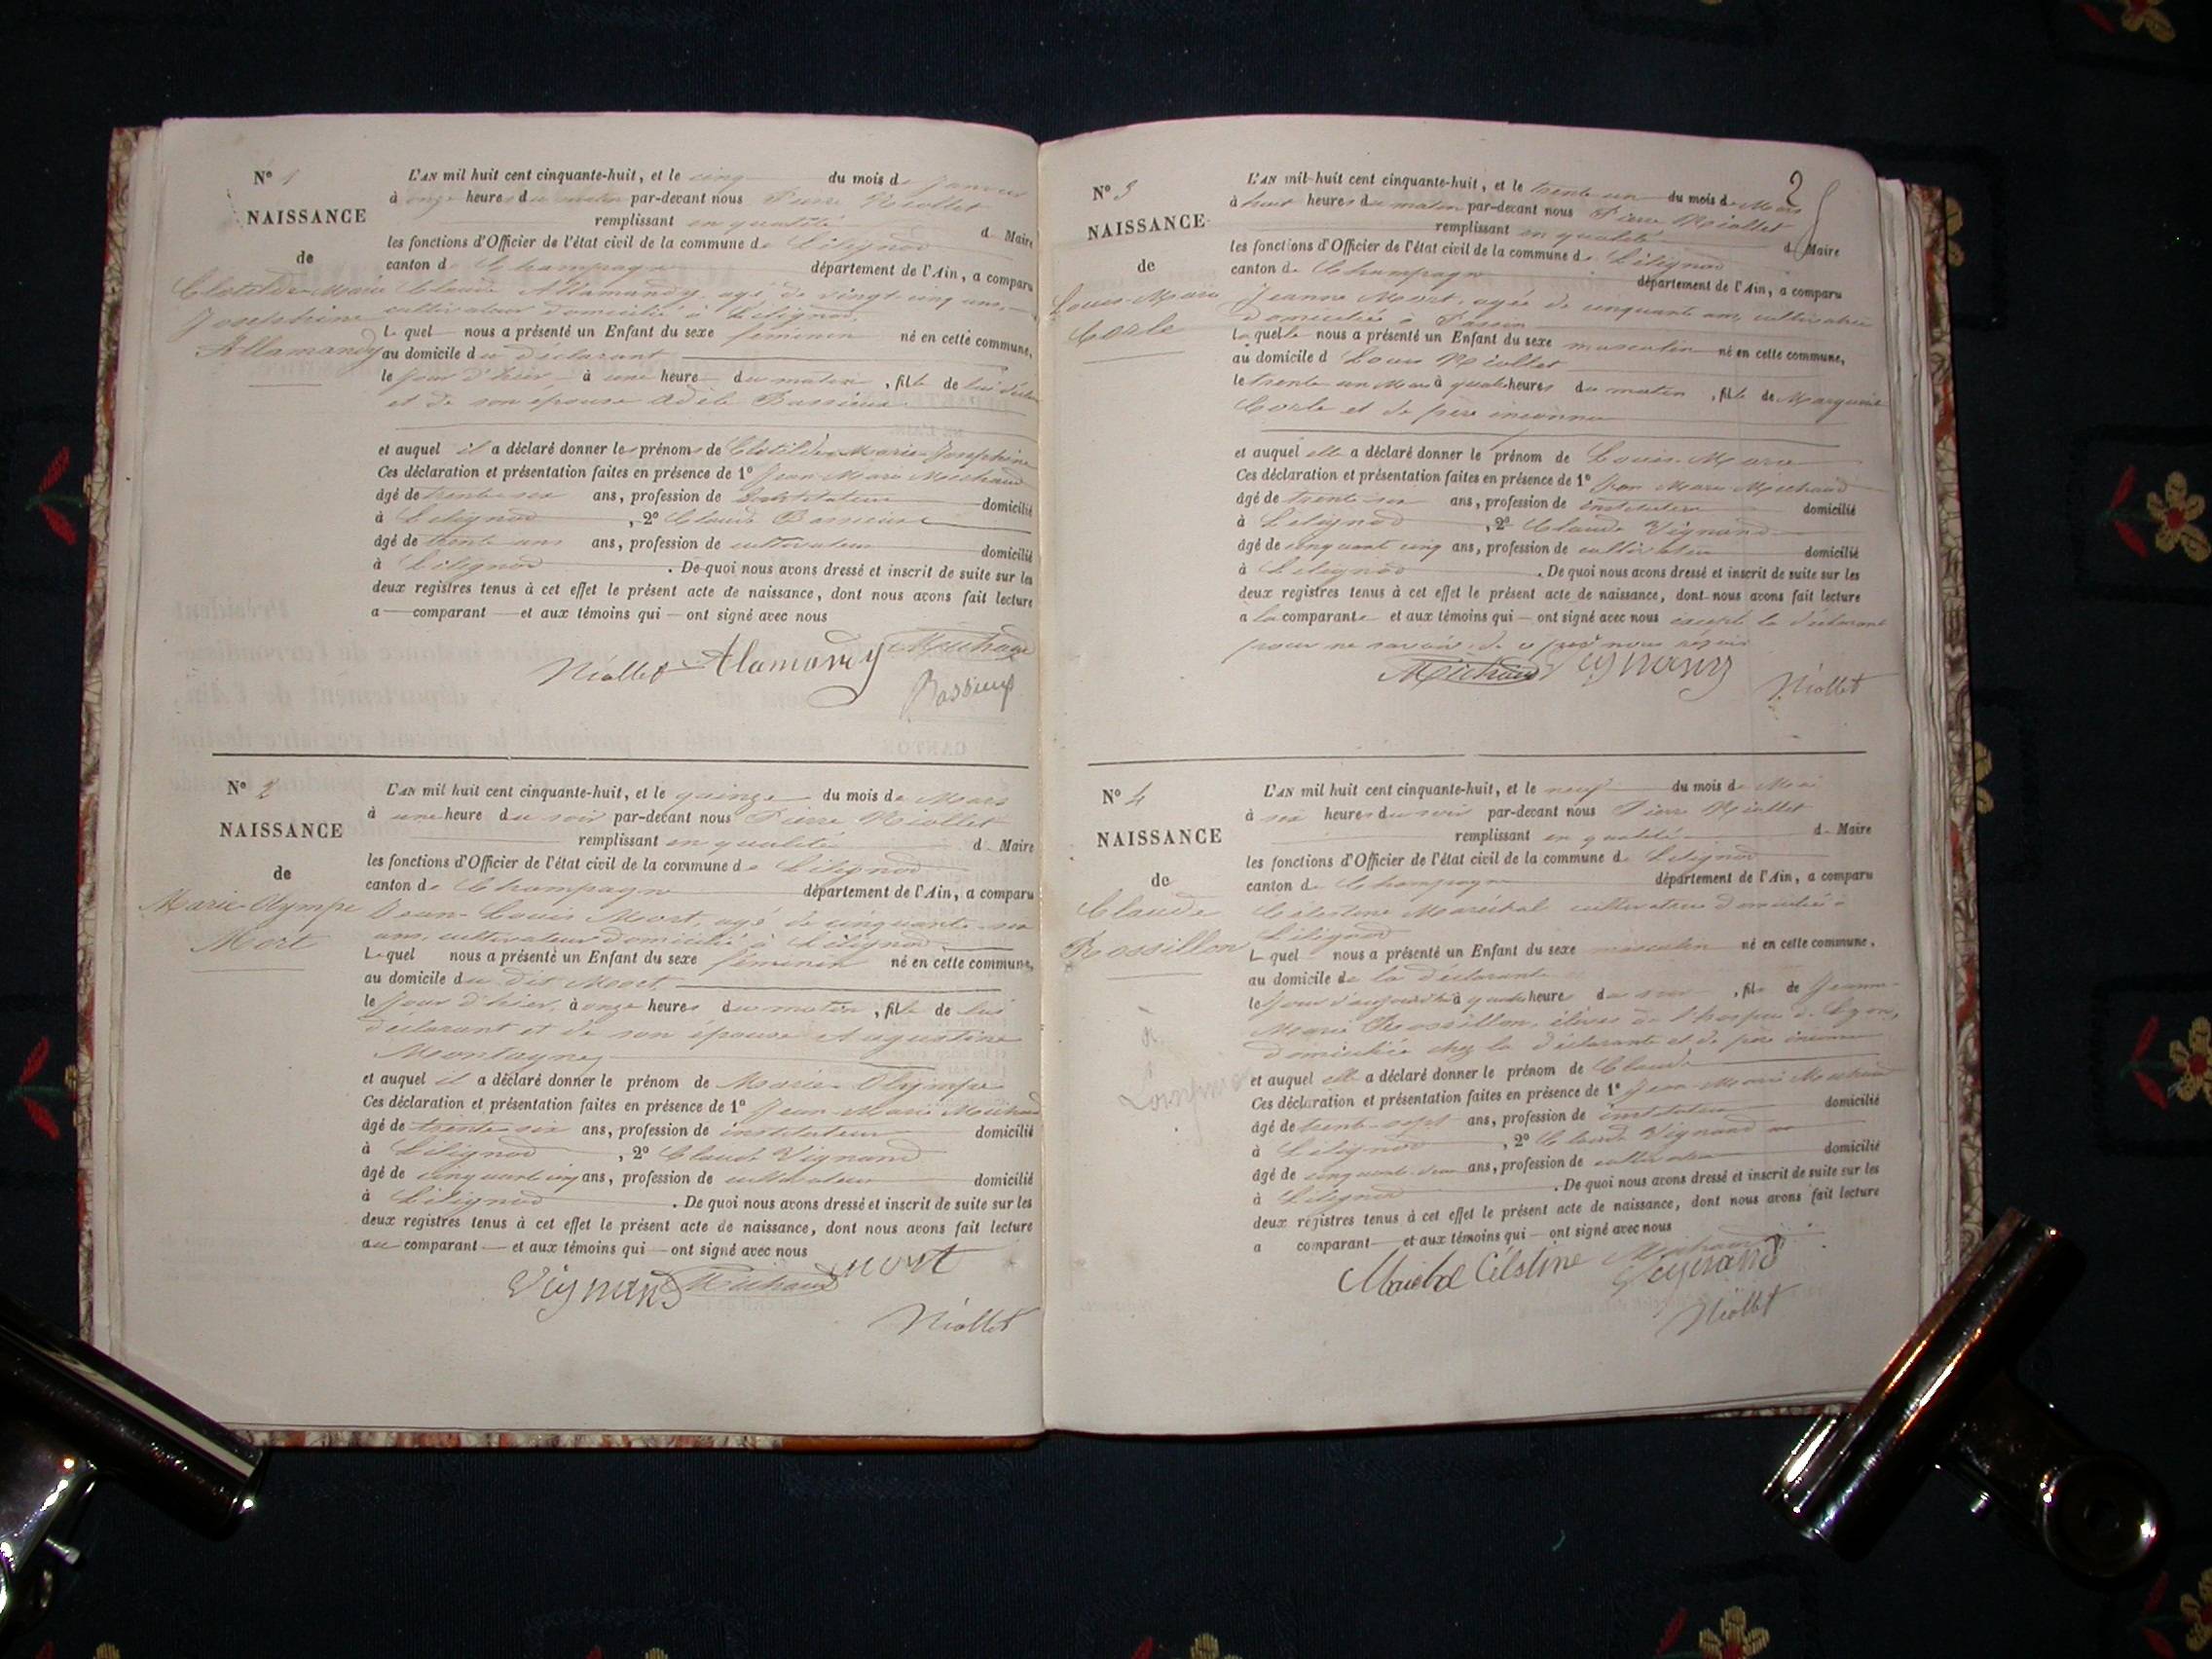 Nº 1
NAISSANCE
de
Clotilde-Marie
Josephine
Allamandy
L'AN mil huit cent cinquante-huit, et le cinq du mois de Janvier
à onze heures du matin par-devant nous Pierre Niollet
remplissant en qualité de Maire
les fonctions d'Officier de l'état civil de la commune de Lilignod
canton de Champagne département de l'Ain, a comparu
Claude Allamandy, agé de vingt-cinq ans,
cultivateur domicilié à Lilignod
Lequel nous a présenté un Enfant du sexe féminin né en cette commune,
au domicile du déclarant
le jour d'hier à une heure du matin, fille de lui
et de son épouse Adèle Bassieux
et auquel il a déclaré donner les prénoms de Clotilde-Marie-Josephine
Ces déclaration et présentation faites en présence de 1º Jean-Marie Michaud
âgé de trente-six ans, profession de Instituteur domicilié
à Lilignod, 2º Claude Bassieux
âgé de trente ans ans, profession de cultivateur domicilié
à Lilignod. De quoi nous avons dressé et inscrit de suite sur les
deux registres tenus à cet effet le présent acte de naissance, dont nous avons fait lecture
a comparant et aux témoins qui ont signé avec nous
Niollet Alamandy Michaud
Bassieux
Nº 2
NAISSANCE
de
Marie-Olympe
Mort
L'AN mil huit cent cinquante-huit, et le quinze du mois de Mars
à une heure du soir par-devant nous Pierre Niollet
remplissant en qualité de Maire
les fonctions d'Officier de l'état civil de la commune de Lilignod
canton de Champagne département de l'Ain, a comparu
Jean-Louis Mort, agé de cinquante-six
ans, cultivateur domicilié à Lilignod
Lequel nous a présenté un Enfant du sexe féminin né en cette commune,
au domicile du dit Mort
le jour d'hier, à onze heures du matin, fille de lui
déclarant et de son épouse Augustine
Montagne
et auquel il a déclaré donner le prénom de Marie-Olympe
Ces déclaration et présentation faites en présence de 1º Jean-Marie Michaud
âgé de trente-six ans, profession de instituteur domicilié
à Lilignod, 2º Claude Vignand
âgé de cinquante cinq ans, profession de cultivateur domicilié
à Lilignod. De quoi nous avons dressé et inscrit de suite sur les
deux registres tenus à cet effet le présent acte de naissance, dont nous avons fait lecture
au comparant et aux témoins qui ont signé avec nous
Vignand Michaud mort
Niollet
2
Nº 3
NAISSANCE
de
Louis-Marie
Corle
L'AN mil huit cent cinquante-huit, et le trente un du mois de Mars
à huit heures du matin par-devant nous Pierre Niollet
remplissant en qualité de Maire
les fonctions d'Officier de l'état civil de la commune de Lilignod
canton de Champagne département de l'Ain, a comparu
Jeanne Mort, agée de cinquante ans, cultivatrice
domiciliée à Passin
Laquelle nous a présenté un Enfant du sexe masculin né en cette commune,
au domicile d Louis Niollet
le trente un Mars à quatre heures du matin, fils de Marguerite
Corle et de père inconnu
et auquel elle a déclaré donner le prénom de Louis-Marie
Ces déclaration et présentation faites en présence de 1º Jean Marie Michaud
âgé de trente-six ans, profession de instituteur domicilié
à Lilignod, 2º Claude Vignand
âgé de cinquante cinq ans, profession de cultivateur domicilié
à Lilignod. De quoi nous avons dressé et inscrit de suite sur les
deux registres tenus à cet effet le présent acte de naissance, dont nous avons fait lecture
a la comparante et aux témoins qui ont signé avec nous excepté la déclarante
pour ne savoir, de ce par nous requis
Michaud Vignand
Niollet
Nº 4
NAISSANCE
de
Claude
Rossillon
L'AN mil huit cent cinquante-huit, et le neuf du mois de Mai
à six heures du soir par-devant nous Pierre Niollet
remplissant en qualité de Maire
les fonctions d'Officier de l'état civil de la commune de Lilignod
canton de Champagne département de l'Ain, a comparu
Célestine Maréchal cultivatrice domiciliée à
Lilignod
Lquel nous a présenté un Enfant du sexe masculin né en cette commune,
au domicile de la déclarante
le jour d'aujourd'hui à quatre heure du soir, fils de Jeanne-
Marie Rossillon, élève de l'hospice de Lyon,
domiciliée chez la déclarante et de père inconnu
et auquel elle a déclaré donner le prénom de Claude
Ces déclaration et présentation faites en présence de 1º Jean-Marie Michaud
âgé de trente-sept ans, profession de instituteur domicilié
à Lilignod, 2º Claude Vignand
âgé de ans, profession de cultivateur domicilié
à Lilignod. De quoi nous avons dressé et inscrit de suite sur les
deux registres tenus à cet effet le présent acte de naissance, dont nous avons fait lecture
a comparant et aux témoins qui ont signé avec nous
Célestine Michaud
Vignand
Niollet